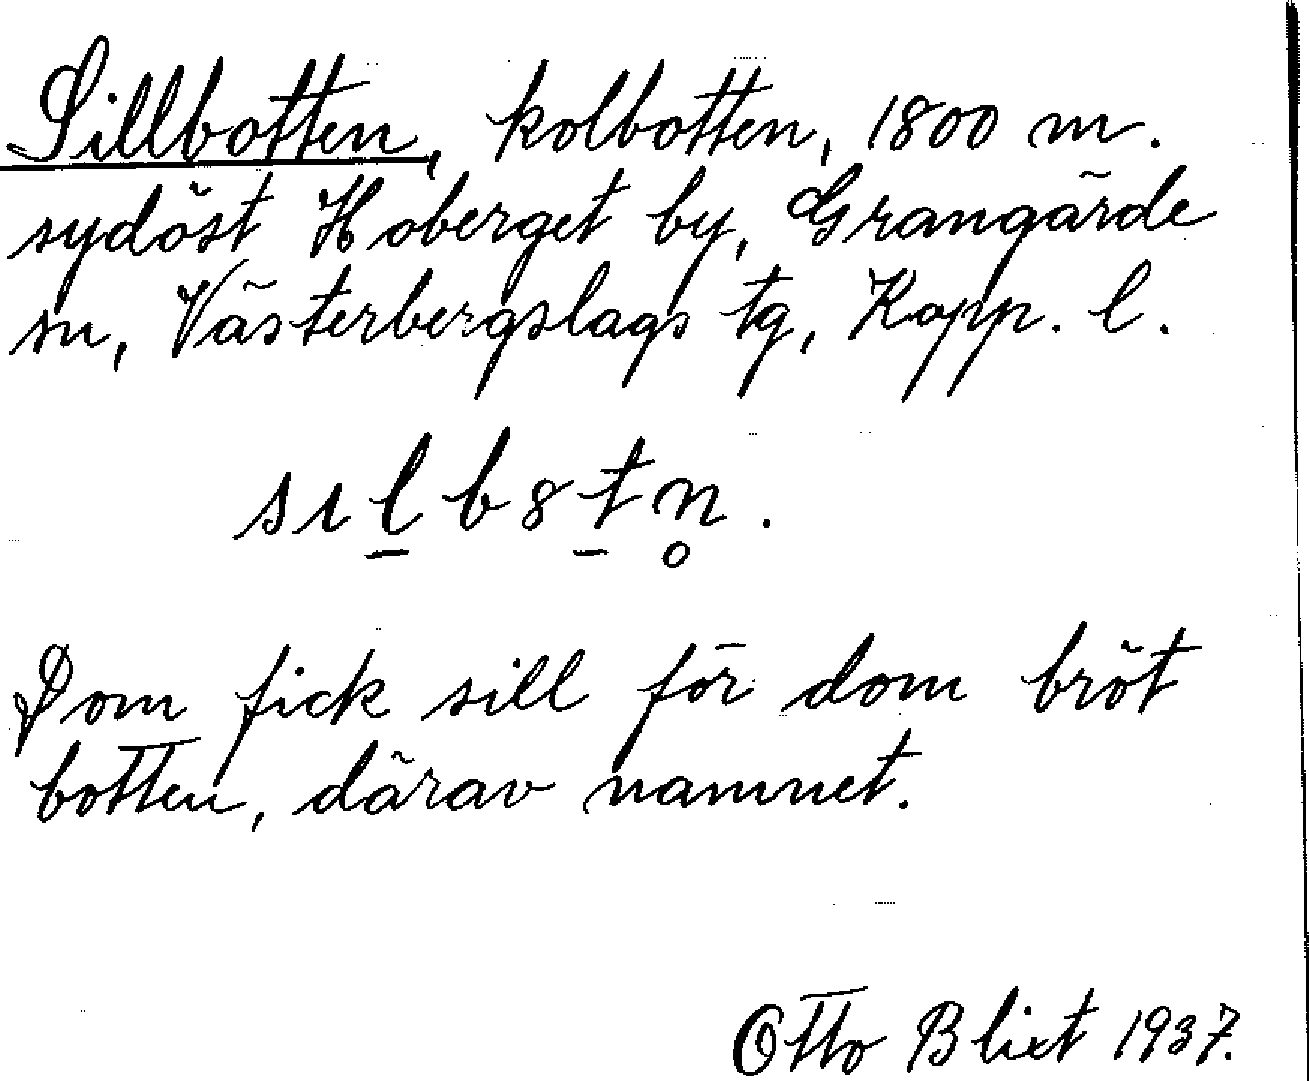 Sillbotten, kolbotten, 1800 m.
sydöst Hoberget by, Grangärde
sn, Västerbergslags tg, Kopp. l.
sıl̠b8t̠n̥.
Dom fick sill för dom bröt
botten, därav namnet.
Otto Blixt 1937.